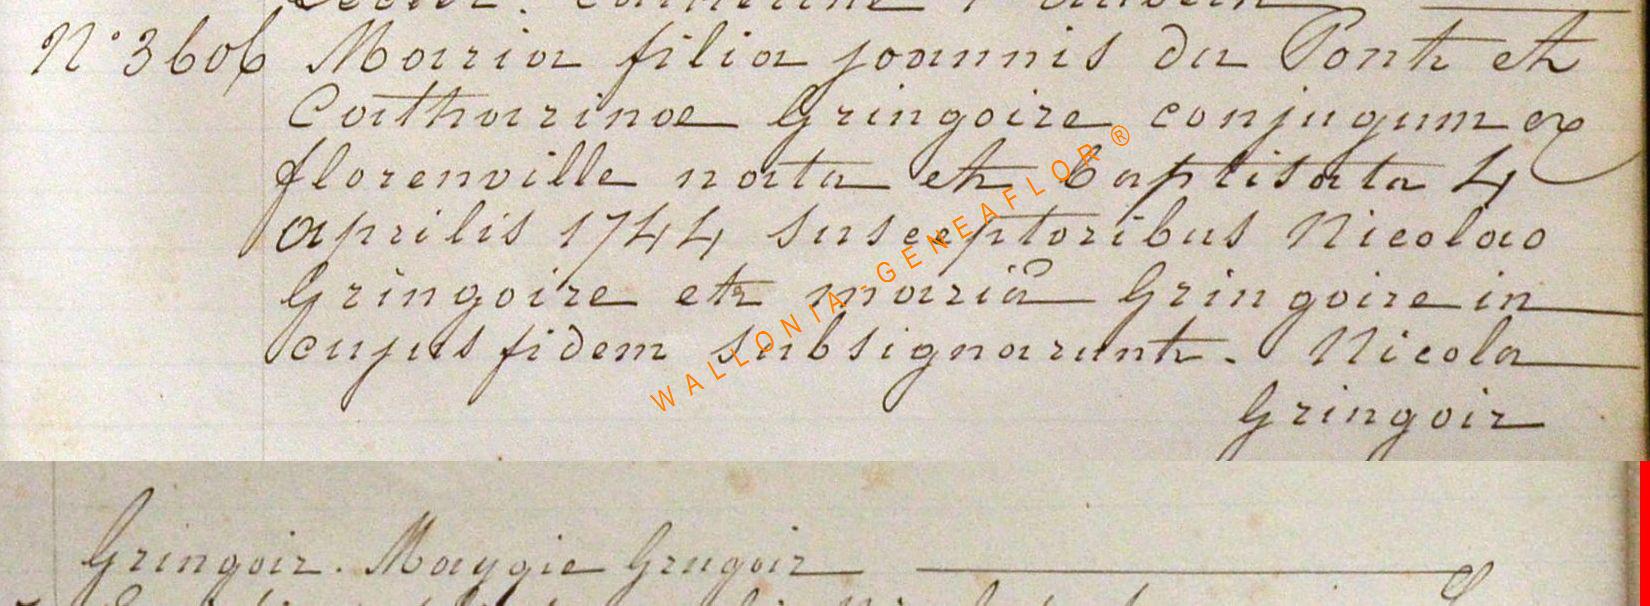 N° 3606 Maria filia joannis du Pont et
Catharinae Gringoire conjugum ex
florenville nata et baptisata 4
aprilis 1744 susceptoribus Nicolao
Gringoire et mariâ Gringoire in
cujus fidem subsignarunt. Nicola
Gringoir
WALLONIA-GENEAFLOR®
Gringoir. Maygie Grugoir